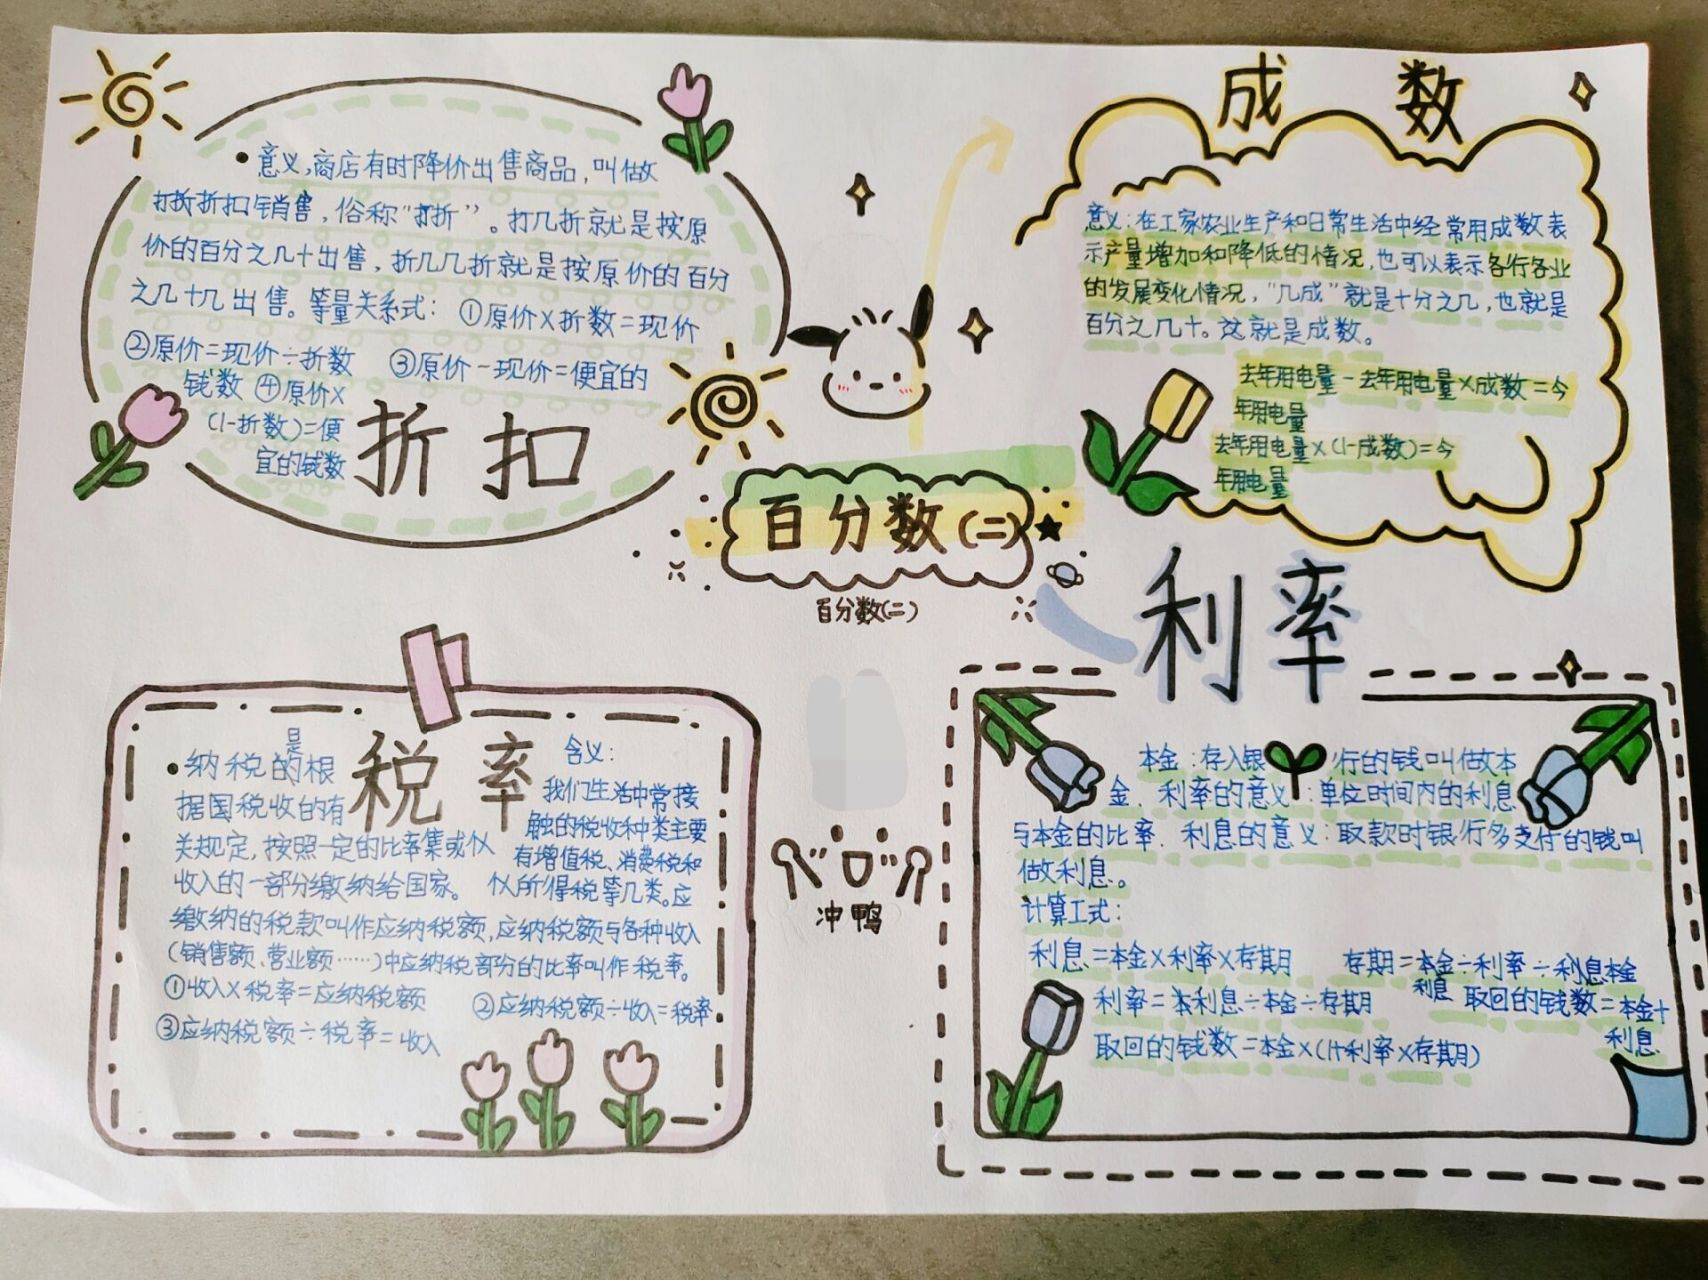 意义，商店有时降价出售商品，叫做
打折折扣销售，俗称“打折”。打几折就是按原
价的百分之几十出售，折几几折就是按原价的百分
之几十几出售。等量关系式：①原价×折数=现价
②原价=现价÷折数 ③原价-现价=便宜的
钱数 ④原价×
(1-折数)=便
宜的钱数
折扣
成 数
意义：在工家农业生产和日常生活中经常用成数表
示产量增加和降低的情况，也可以表示各行各业
的发展变化情况，“几成”就是十分之几，也就是
百分之几十。这就是成数。
去年用电量-去年用电量×成数=今
年用电量
去年用电量×(1-成数)=今
年用电量
百分数(二)
百分数(二)
税率
是
纳税的根
据国税收的有
关规定，按照一定的比率集或似
收入的一部分缴纳给国家。
含义：
我们生活中常接
触的税收种类主要
有增值税、消费税和
似所得税等几类。应
缴纳的税款叫作应纳税额，应纳税额与各种收入
(销售额、营业额……)中应纳税部分的比率叫作税率。
①收入×税率=应纳税额 ②应纳税额÷收入=税率
③应纳税额÷税率=收入
冲鸭
利率
本金：存入银行的钱叫做本
金．利率的意义：单位时间内的利息
与本金的比率．利息的意义：取款时银行多支付的钱叫
做利息。
计算工式：
利息=本金×利率×存期 存期=本金÷利率÷利息本金
利息
利率=利息÷本金÷存期 取回的钱数=本金+
利息
取回的钱数=本金×(1+利率×存期)